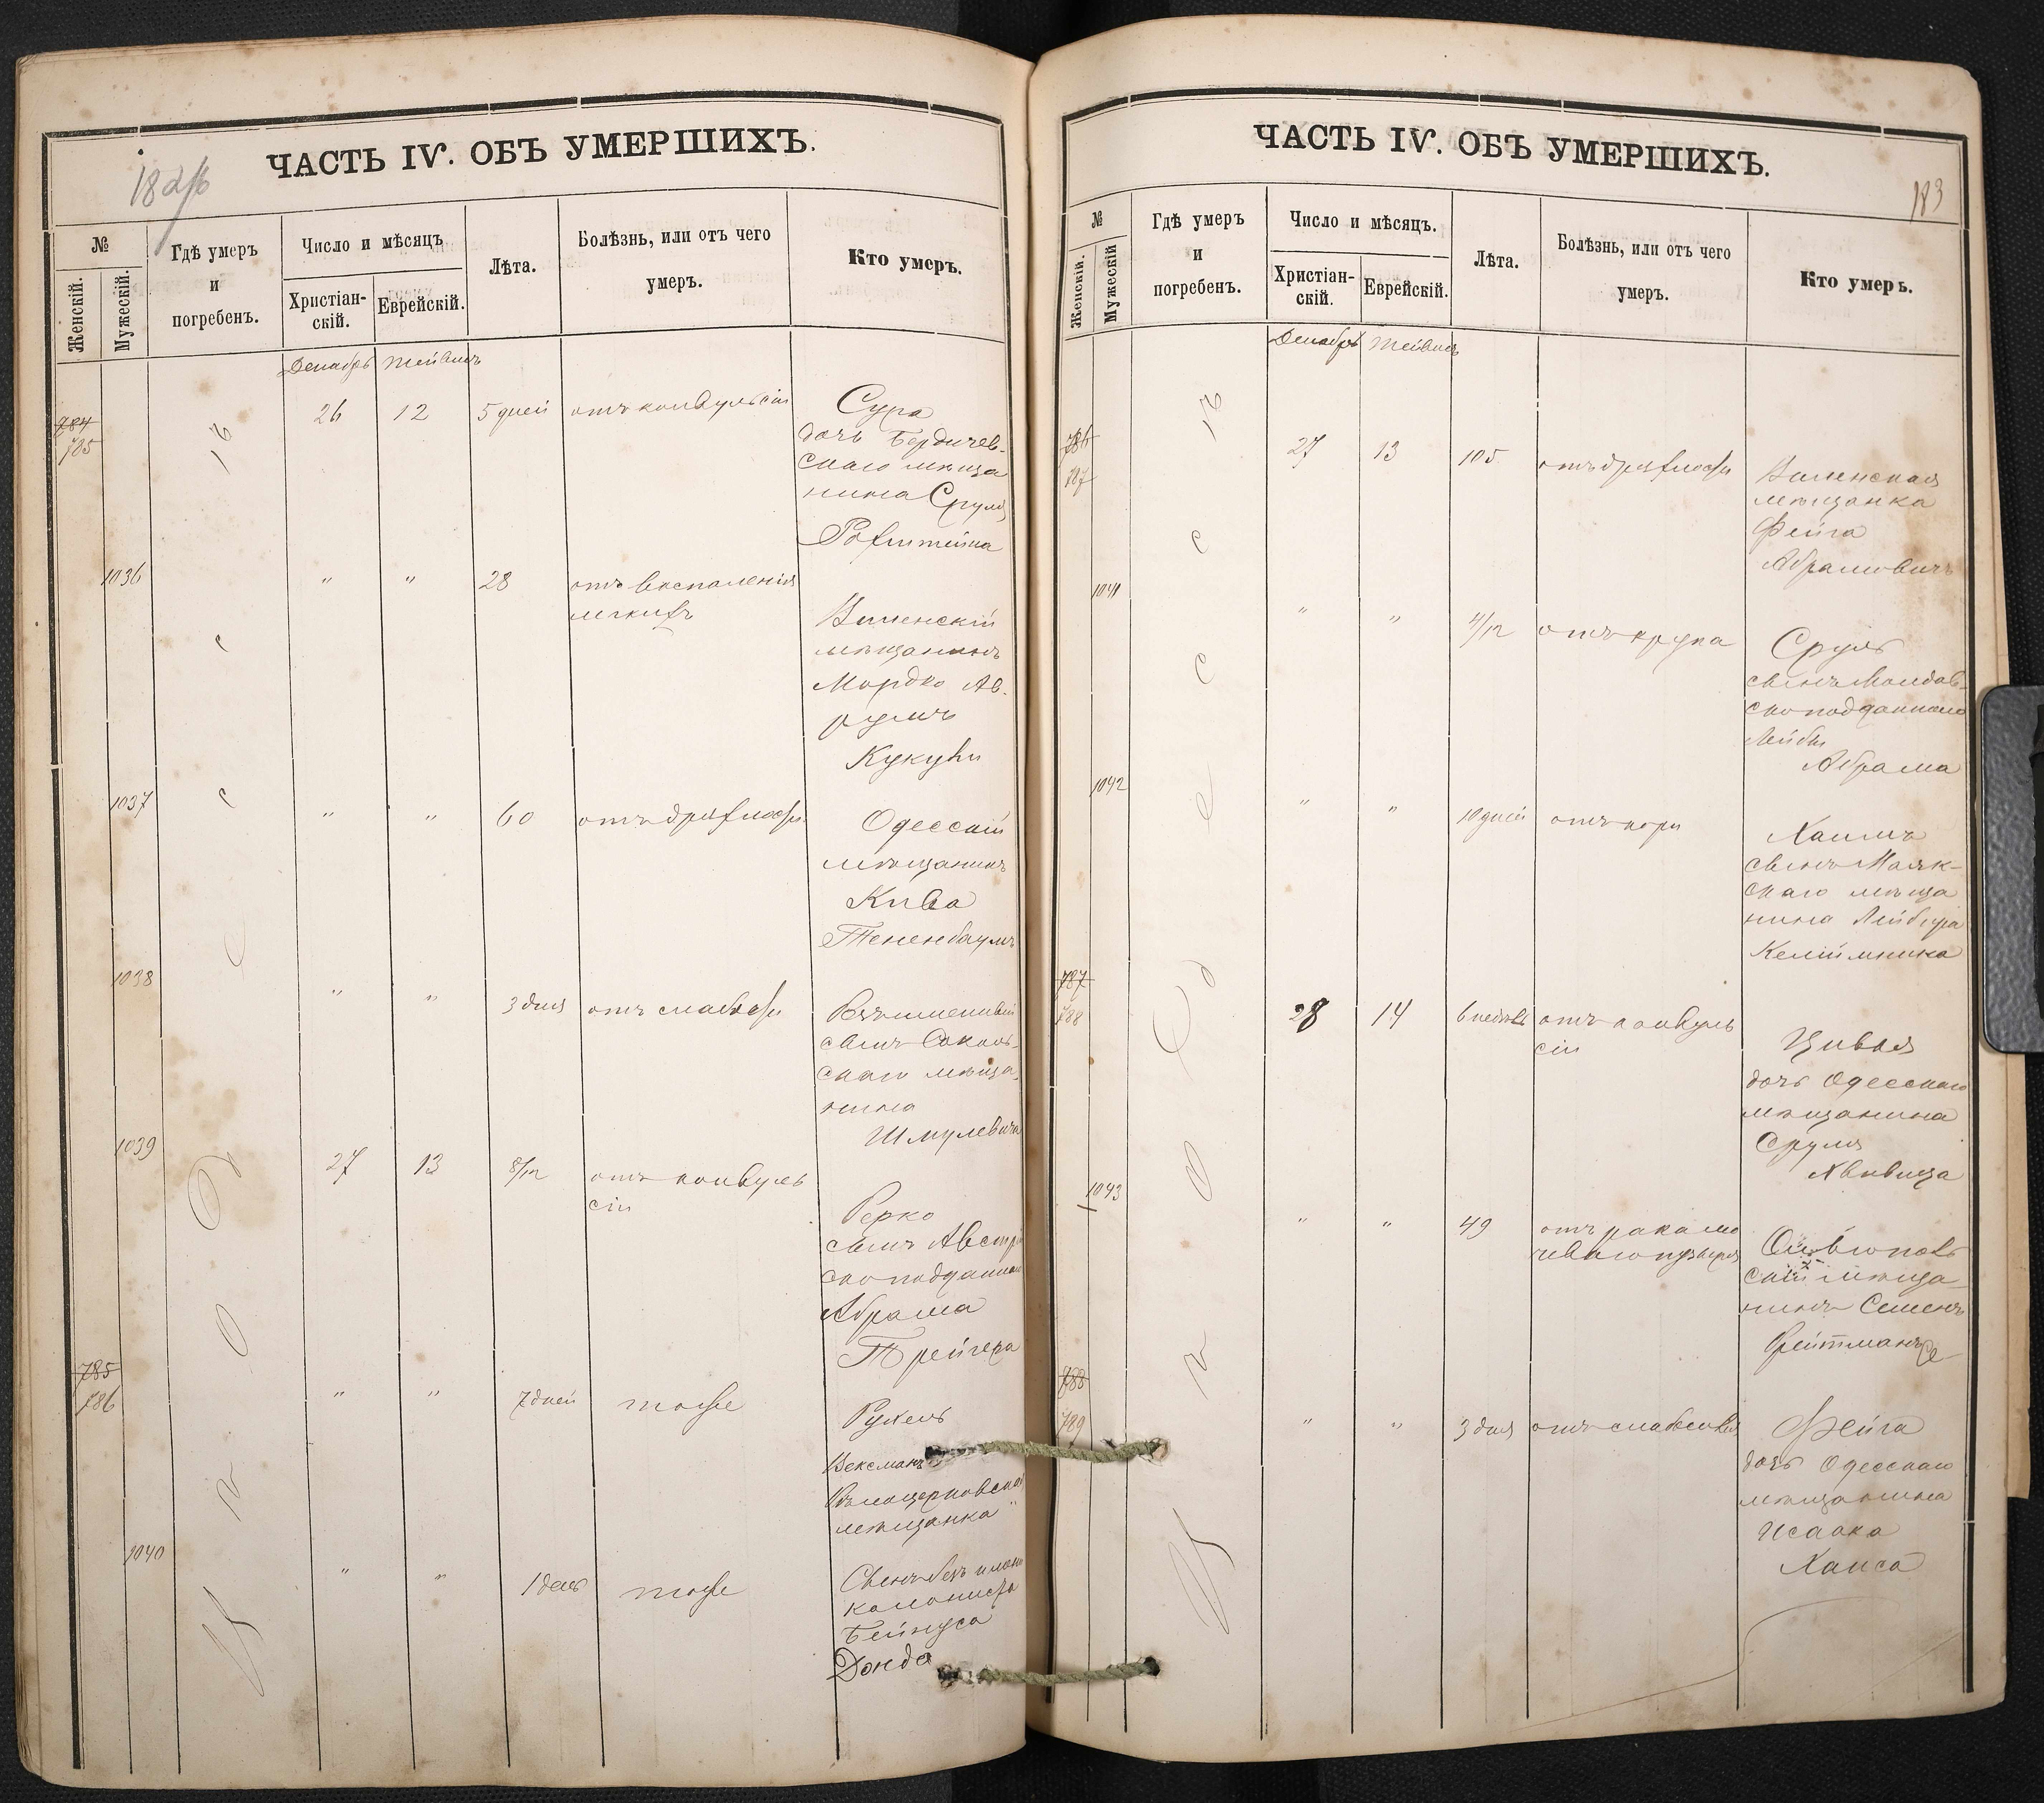 182 об
ЧАСТЬ IV. ОБЪ УМЕРШИХЪ.
№
Женскій.
Мужескій.
Гдѣ умеръ
и
погребенъ.
Число и мѣсяцъ
Христіан-
скій.
Еврейскій.
Лѣта.
Болѣзнь, или отъ чего
умеръ.
Кто умеръ.
Декабрь Тейвисъ
784
785
26
12
5 дней
отъ конвульсіи
Сура
дочь Бердичев-
скаго мѣща
нина Сруля
Рофштейна
1036
"
"
28
отъ воспаленія
легкихъ
Виленскій
мѣщанинъ
Мордко Ав-
румъ
1037
"
"
60
отъ дряхлости
Одесскій
мѣщанинъ
Кива
Тененбаумъ
1038
"
"
3 дня
отъ слабости
сынъ
скаго мѣща-
нина
Шмулевича
1039
27
13
8/12
отъ конвуль
сіи
Берко
сынъ Австрій
скоподданнаго
Абрама
Трейгера
785
786
"
"
7 дней
тоже
Рухель
Вексманъ
Бѣлоцерковская
мѣщанка
1040
"
"
1 день
тоже
Сынъ безъ имени
колониста
Бейнуса
Донда
въ Одессѣ
183
ЧАСТЬ IV. ОБЪ УМЕРШИХЪ.
№
Женскій.
Мужескій
Гдѣ умеръ
и
погребенъ.
Число и мѣсяцъ.
Христіан-
скій.
Еврейскій.
Лѣта.
Болѣзнь, или отъ чего
умеръ.
Кто умеръ.
Декабрь Тейвисъ
786
787
27
13
105
отъ дряхлости
Виленская
мѣщанка
Фейга
Абрамовичъ
1041
"
"
4/12
отъ крупа
Сруль
сынъ Молдав-
скоподданнаго
Лейбы
Абрама
1042
"
"
10 дней
отъ кори
Хаимъ
сынъ Маяк-
скаго мѣща
нина Лейзера
Келіймника
787
788
28
14
6 недѣль
отъ конвуль
сіи
Цивья
дочь Одесскаго
мѣщанина
Сруля
1043
"
"
49
отъ рака мо
чеваго пузыря
Ольвіополь
скій мѣща
нинъ Семенъ
Фейтманъ
788
789
"
"
3 дня
отъ слабости
Фейга
дочь Одесскаго
мѣщанина
Исаака
Хаиса
въ Одессѣ